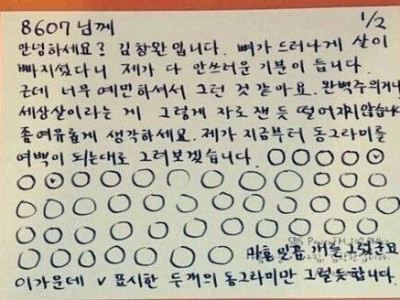 8607님께 1/2
안녕하세요? 김창완입니다. 뼈가 드러나게 살이
빠지셨다니 제가 다 안쓰러운 기분이 듭니다.
근데 너무 예민하셔서 그런 것 같아요. 완벽주의거나
세상살이라는 게 그렇게 자로 잰 듯 떨어지지 않습니다
좀 여유롭게 생각하세요. 제가 지금부터 동그라미를
여백이 되는대로 그려보겠습니다.
마흔일곱 개를 그렸군요
이 가운데 v 표시한 두 개의 동그라미만 그럴듯합니다.